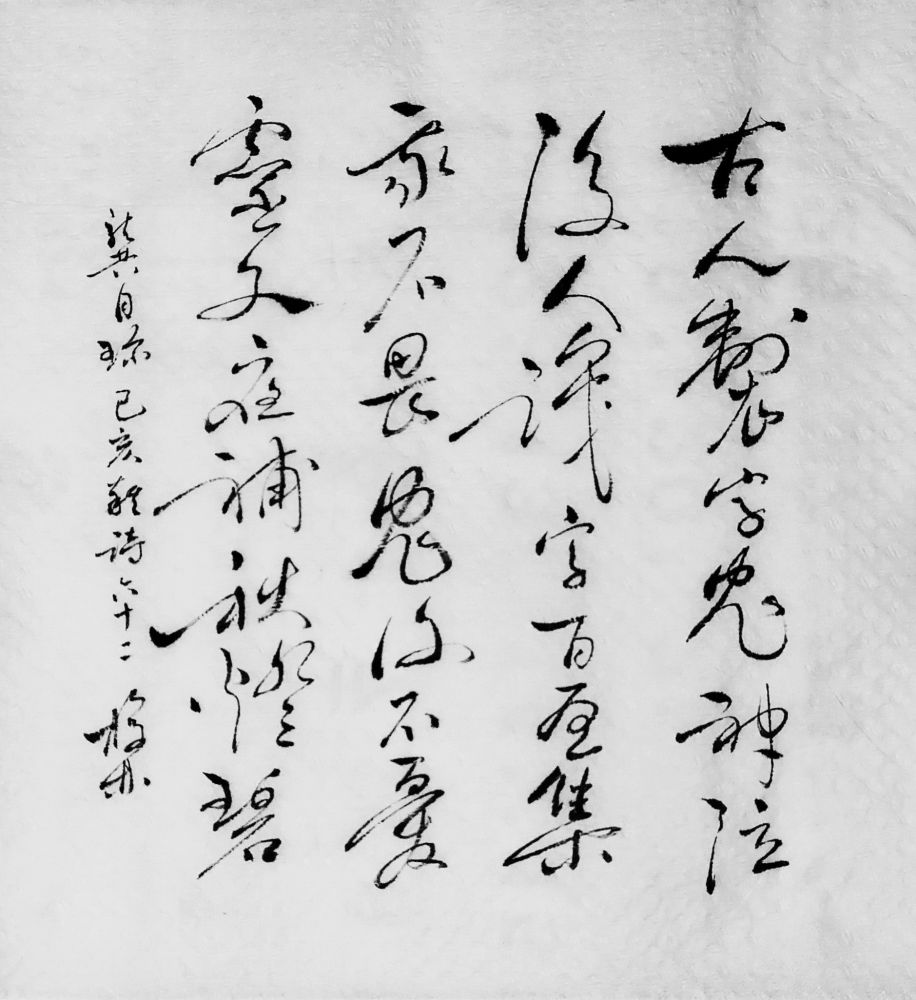 古人製字鬼神泣
後人識字百憂集
我不畏鬼復不憂
靈文夜補秋燈碧
龔自珍己亥雜詩六十二